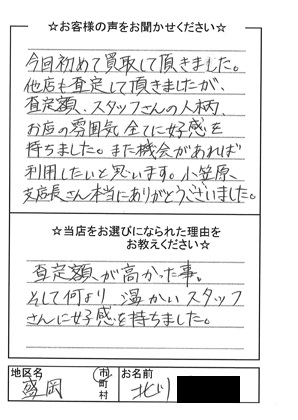 ☆お客様の声をお聞かせください☆
今回初めて買取して頂きました。
他店も査定して頂きましたが、
査定額、スタッフさんの人柄、
お店の雰囲気全てに好感を
持ちました。また機会があれば
利用したいと思います。小笠原、
支店長さん本当にありがとうございました。
☆当店をお選びになられた理由を
お教えください☆
査定額が高かった事。
そして何より温かいスタッフ
さんに好感を持ちました。
地区名 市町村 お名前
盛岡 北川